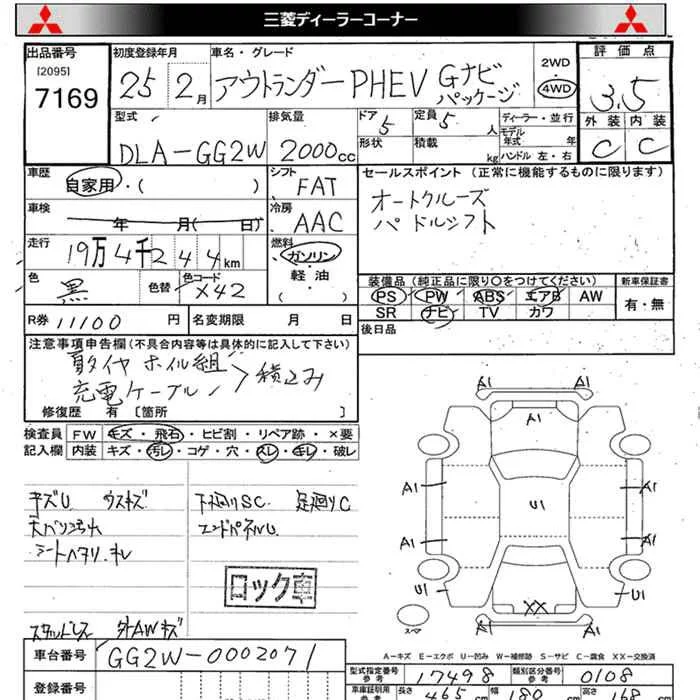 三菱ディーラーコーナー
出品番号 初度登録年月 車名・グレード 2WD 評価点
[2095] 7169 25 2月 アウトランダーPHEV Gナビパッケージ 4WD 3.5
型式 排気量 ドア 5 定員 5人 ディーラー・並行 外装 内装
DLA-GG2W 2000cc 形状 積載 kg モデル年式 年 C C
ハンドル 左・右
車歴 自家用・( ) シフト FAT セールスポイント (正常に機能するものに限ります)
車検 年 月( 日) 冷房 AAC オートクルーズ
パドルシフト
走行 19万4千244km 燃料 ガソリン
軽・油
・( )
色 黒 色替 色コード X42 装備品 (純正品に限り〇をつけてください) 新車保証書
PS PW ABS エアB AW 有・無
SR ナビ TV カワ
R券 11100円 名変期限 月 日 後日品
注意事項申告欄(不具合内容等は具体的に記入して下さい)
夏タイヤ ホイル組
充電ケーブル 積込み
修復歴 有 〔箇所 〕
検査員 FW キズ・飛石・ヒビ割・リペア跡・×要
記入欄 内装 キズ・汚レ・コゲ・穴・スレ・キレ・破レ
キズU ウスキズ 下廻りSC 足廻りC
エンドパネルU
シートヘタリ.キレ
ロック車
スタッドレス 外AWキズ
A1 A1
A1
A1 A1
U1
A1 A1
U1 U1
XX
スペア
A-キズ E-エクボ U-凹み W-補修跡 S-サビ C-腐食 XX-交換済
車台番号 GG2W-0002071
型式指定番号 参考 17498 類別区分番号 参考 0108
登録番号 車庫証明用 参考 長さ 465 cm 幅 180 cm 高さ 168 cm